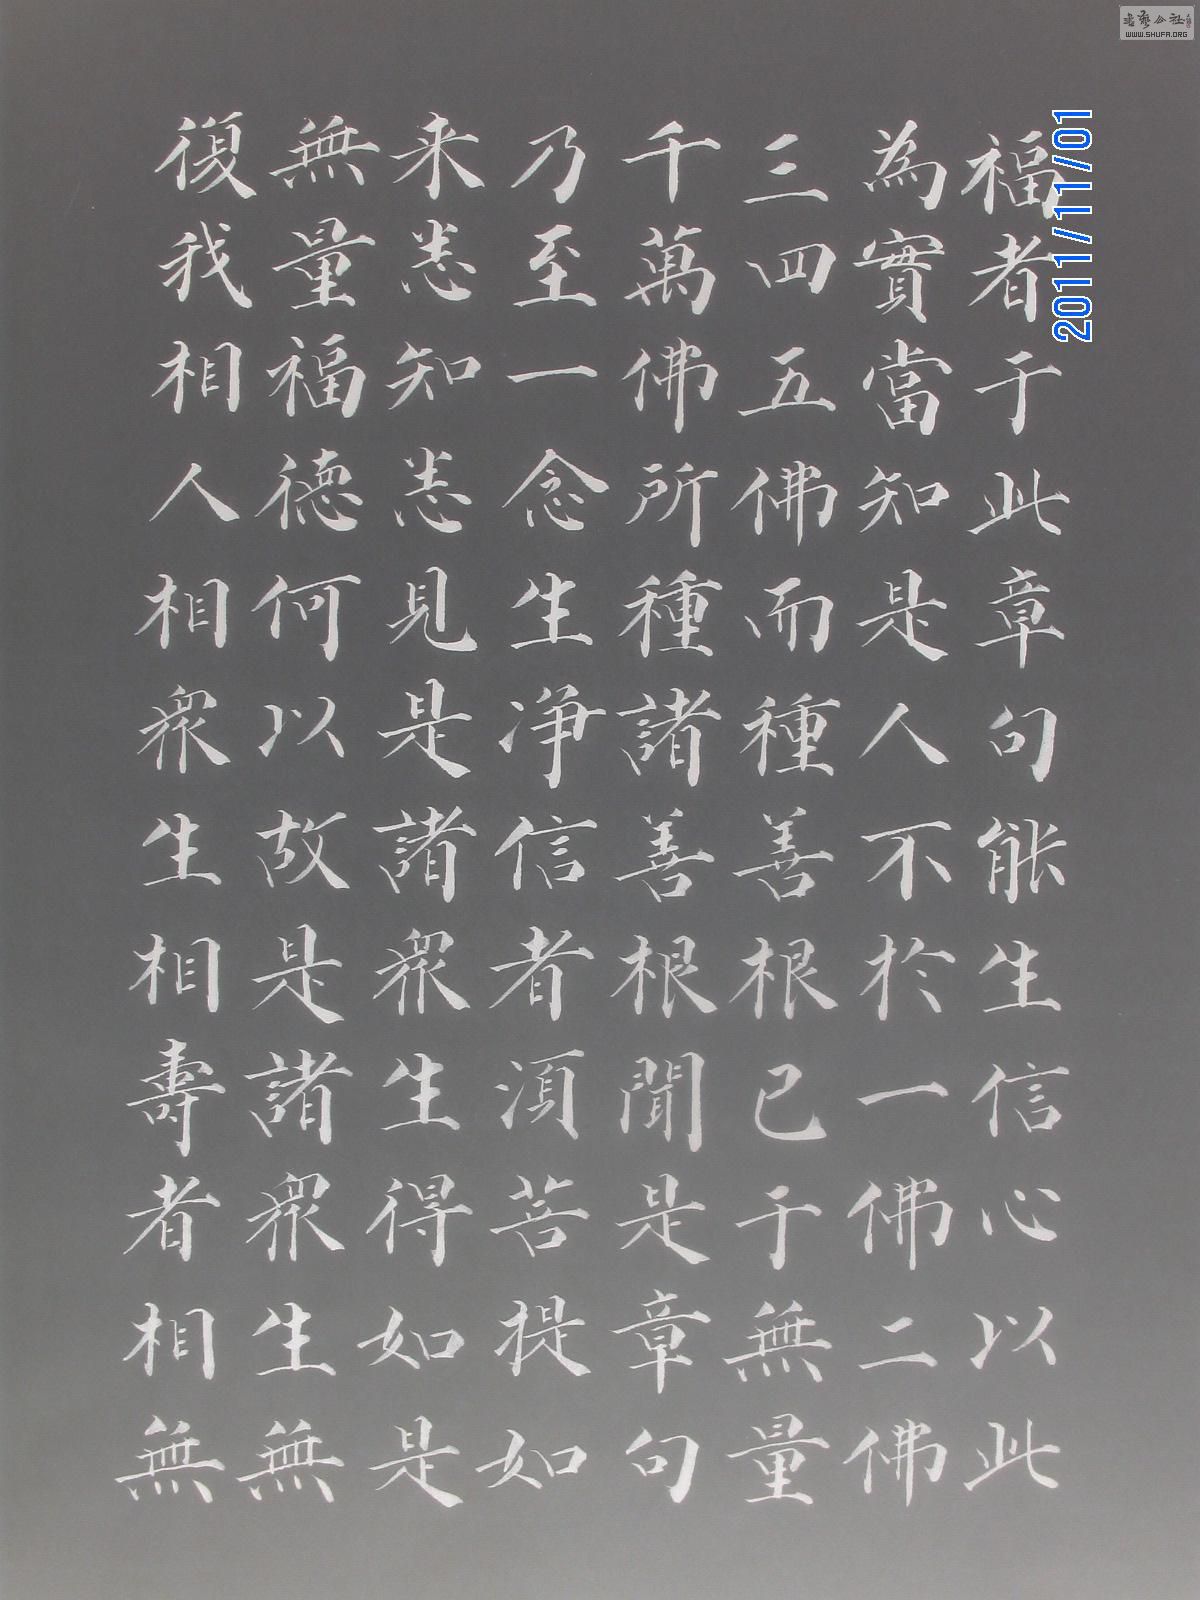 福者于此章句能生信心以此
為實當知是人不於一佛二佛
三四五佛而種善根已于無量
千萬佛所種諸善根聞是章句
乃至一念生净信者須菩提如
来悉知悉見是諸眾生得如是
無量福德何以故是諸眾生無
復我相人相眾生相壽者相無
2011/11/01
書藝公社
WWW.SHUFA.ORG